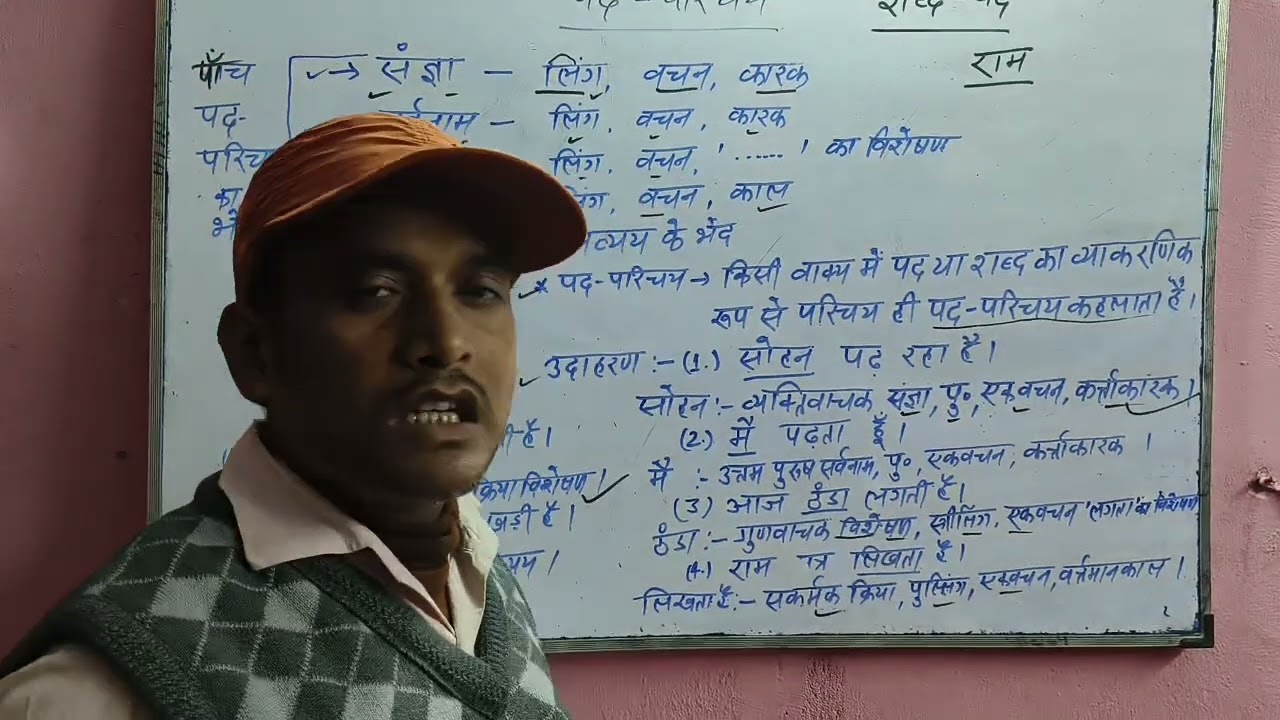 पद-परिचय शब्द-पद
पाँच → संज्ञा — लिंग, वचन, कारक राम
पद- सर्वनाम — लिंग, वचन, कारक
परिचय लिंग, वचन, '......' का विशेषण
का लिंग, वचन, काल
अव्यय के भेद
* पद-परिचय → किसी वाक्य में पद या शब्द का व्याकरणिक
रूप से परिचय ही पद-परिचय कहलाता है।
उदाहरण :- (1.) सोहन पढ़ रहा है।
सोहन :- व्यक्तिवाचक संज्ञा, पु॰, एकवचन, कर्त्ताकारक।
है। (2.) मैं पढ़ता हूँ।
क्रिया विशेषण। मैं :- उत्तम पुरुष सर्वनाम, पु॰, एकवचन, कर्त्ताकारक।
है। (3) आज ठंडा लगती है।
ठंडा :- गुणवाचक विशेषण, स्त्रीलिंग, एकवचन 'लगता' का विशेषण
(4.) राम लिखता है।
लिखता है :- सकर्मक क्रिया, पुल्लिंग, एकवचन, वर्त्तमानकाल।